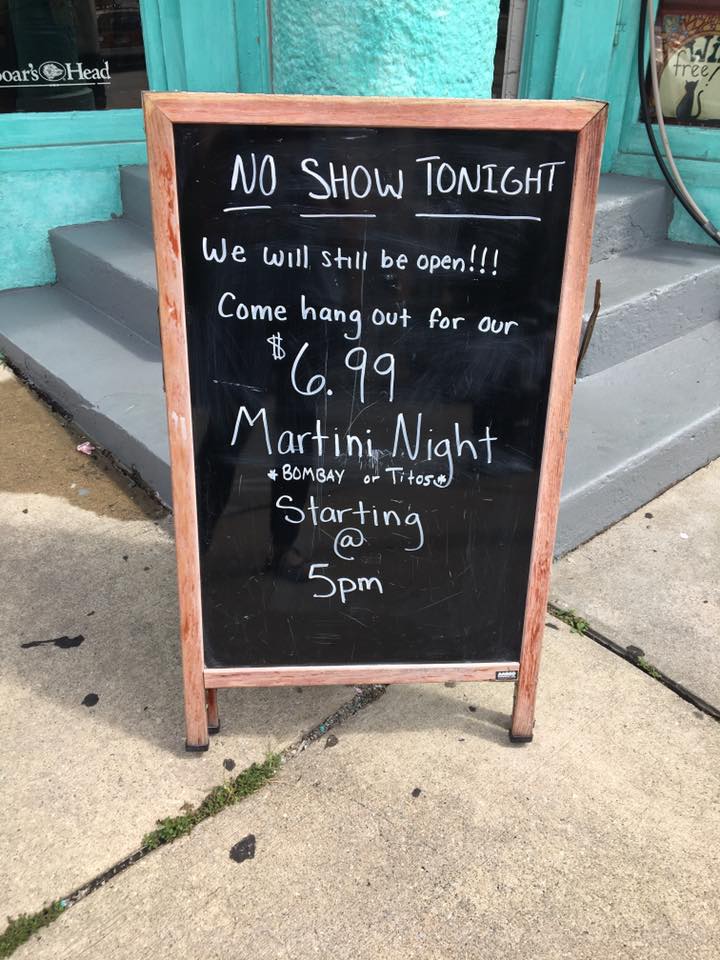 oar's Head
free!
NO SHOW TONIGHT
We will still be open!!!
Come hang out for our
$6.99
Martini Night
*BOMBAY or Titos*
Starting
@
5pm